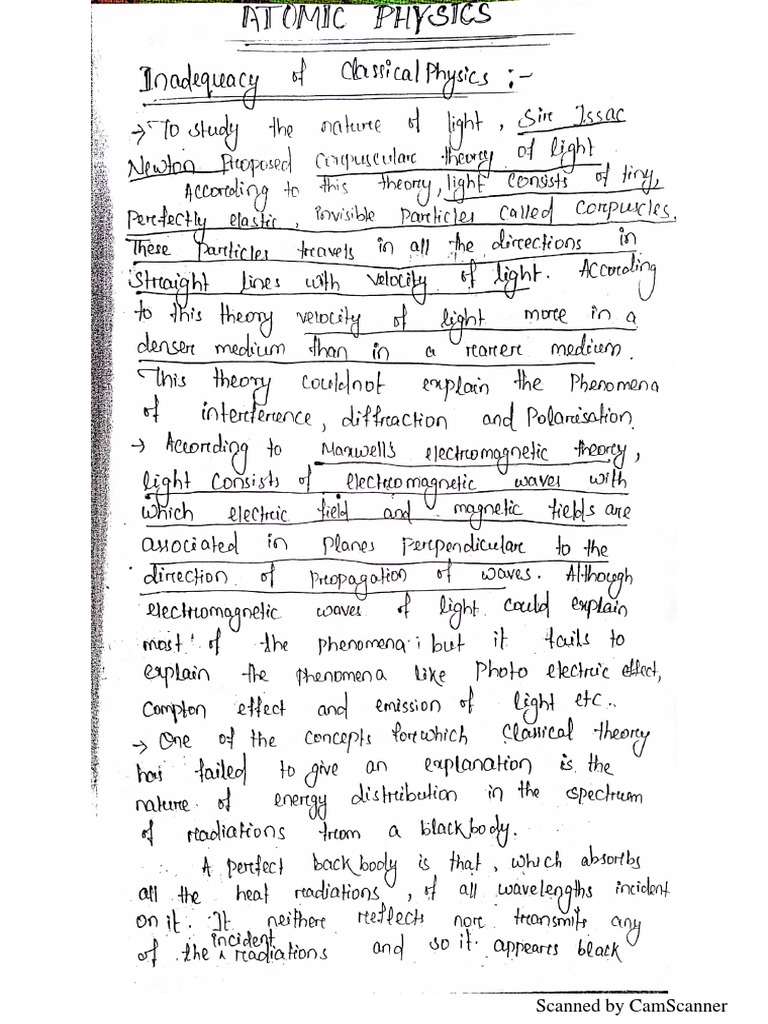 ATOMIC PHYSICS
Inadequacy of Classical Physics :-
→ To study the nature of light, Sir Issac
Newton Proposed Corpuscular theory of light
According to this theory, light consists of tiny,
Perfectly elastic, invisible Particles called Corpuscles.
These Particles travels in all the directions in
Straight Lines with velocity of light. According
to this theory velocity of light more in a
denser medium than in a rarer medium.
This theory couldnot explain the Phenomena
of interference, diffraction and Polarisation.
→ According to Maxwell's electromagnetic theory,
light Consists of electromagnetic waves with
which electric field and magnetic fields are
associated in Planes Perpendicular to the
direction of Propagation of waves. Although
electromagnetic waves of light could explain
most of the phenomena; but it fails to
explain the phenomena like Photo electric effect,
Compton effect and emission of light etc..
→ One of the concepts forwhich Classical theory
has failed to give an explanation is the
nature of energy distribution in the spectrum
of radiations from a blackbody.
A perfect backbody is that, which absorbs
all the heat radiations, of all wavelengths incident
on it. It neither reflects nor transmits any
of the incident radiations and so it appears black
Scanned by CamScanner